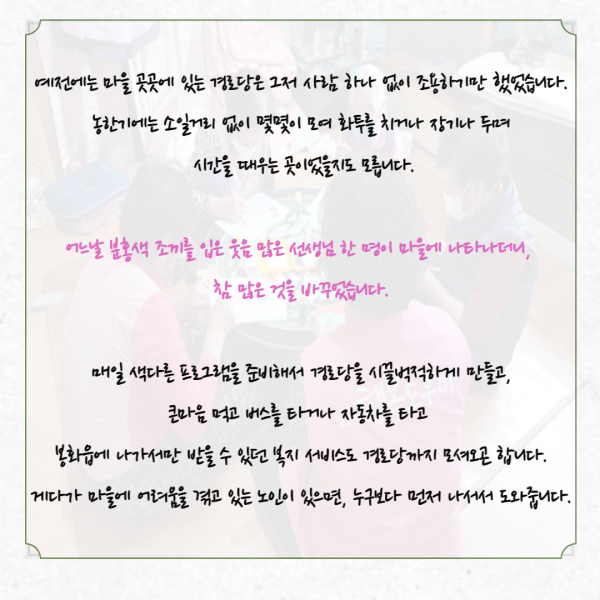 예전에는 마을 곳곳에 있는 경로당은 그저 사람 하나 없이 조용하기만 했었습니다.
농한기에는 소일거리 없이 몇몇이 모여 화투를 치거나 장기나 두며
시간을 때우는 곳이었을지도 모릅니다.
어느날 분홍색 조끼를 입은 웃음 많은 선생님 한 명이 마을에 나타나더니,
참 많은 것을 바꾸었습니다.
매일 색다른 프로그램을 준비해서 경로당을 시끌벅적하게 만들고,
큰마음 먹고 버스를 타거나 자동차를 타고
봉화읍에 나가서만 받을 수 있던 복지 서비스도 경로당까지 모셔오곤 합니다.
게다가 마을에 어려움을 겪고 있는 노인이 있으면, 누구보다 먼저 나서서 도와줍니다.